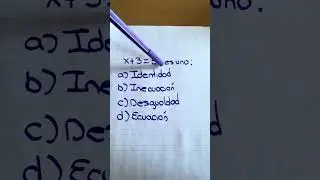 x+3=5 es uno:
a) Identidad
b) Inecuación
c) Desigualdad
d) Ecuación